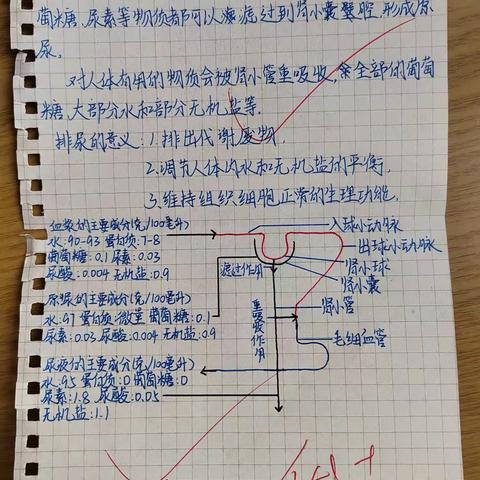 萄糖、尿素等物质都可以滤过到肾小囊囊腔，形成原
尿。
对人体有用的物质会被肾小管重吸收，全部的葡萄
糖、大部分水和部分无机盐等.
排尿的意义：1.排出代谢废物.
2.调节人体内水和无机盐的平衡.
3.维持组织细胞正常的生理功能.
血浆的主要成分(克/100毫升)
水：90-93 蛋白质：7-8
葡萄糖：0.1 尿素：0.03
尿酸：0.004 无机盐：0.9
原尿的主要成分(克/100毫升)
水：97 蛋白质：微量 葡萄糖：0.1
尿素：0.03 尿酸：0.004 无机盐：0.9
尿液的主要成分(克/100毫升)
水：95 蛋白质：0 葡萄糖：0
尿素：1.8 尿酸：0.05
无机盐：1.1
入球小动脉
出球小动脉
肾小球
肾小囊
滤过作用
肾小管
重吸收作用
毛细血管